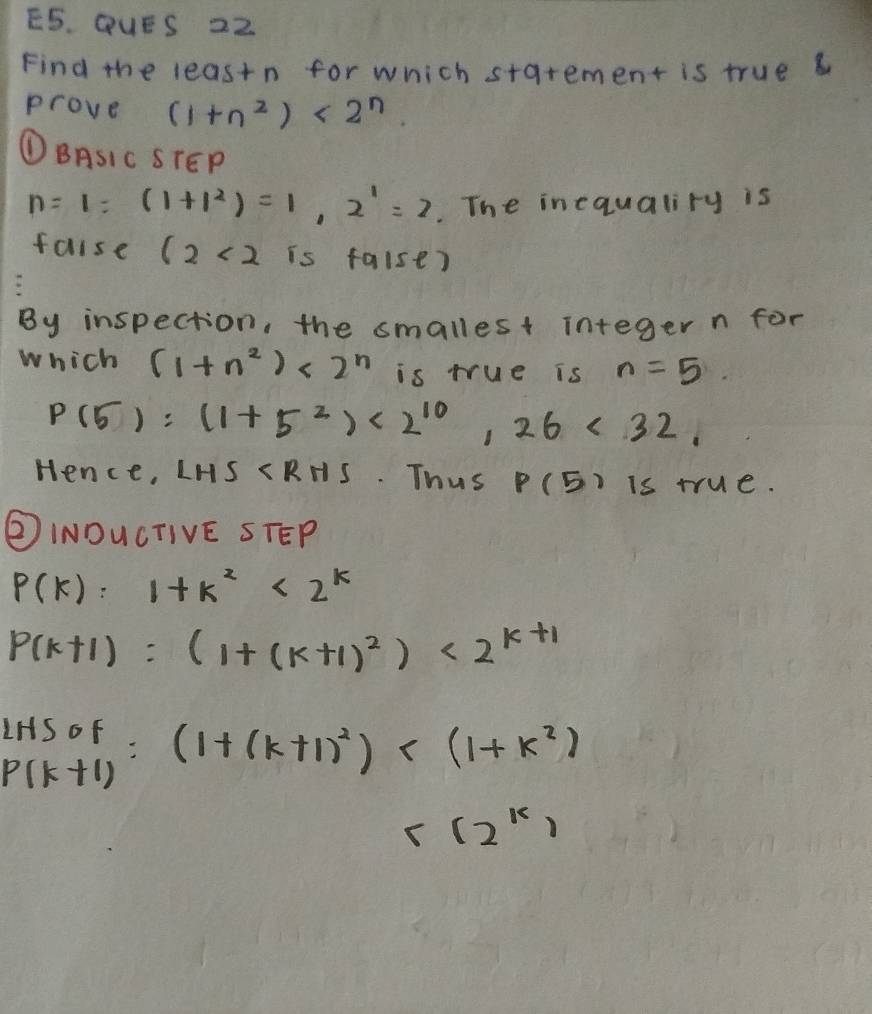 E5. QUES 22
Find the least n for which statement is true &
prove (1+n²) < 2ⁿ.
① BASIC STEP
n=1: (1+1²) = 1, 2¹ = 2. The inequality is
false (2 < 2 is false)
⋮
By inspection, the smallest integer n for
which (1+n²) < 2ⁿ is true is n = 5.
P(5) : (1+5²) < 2¹⁰, 26 < 32.
Hence, LHS < RHS. Thus P(5) is true.
② INDUCTIVE STEP
P(k) : 1+k² < 2ᵏ
P(k+1) : (1+(k+1)²) < 2ᵏ⁺¹
LHS of P(k+1) : (1+(k+1)²) < (1+k²)
< (2ᵏ)